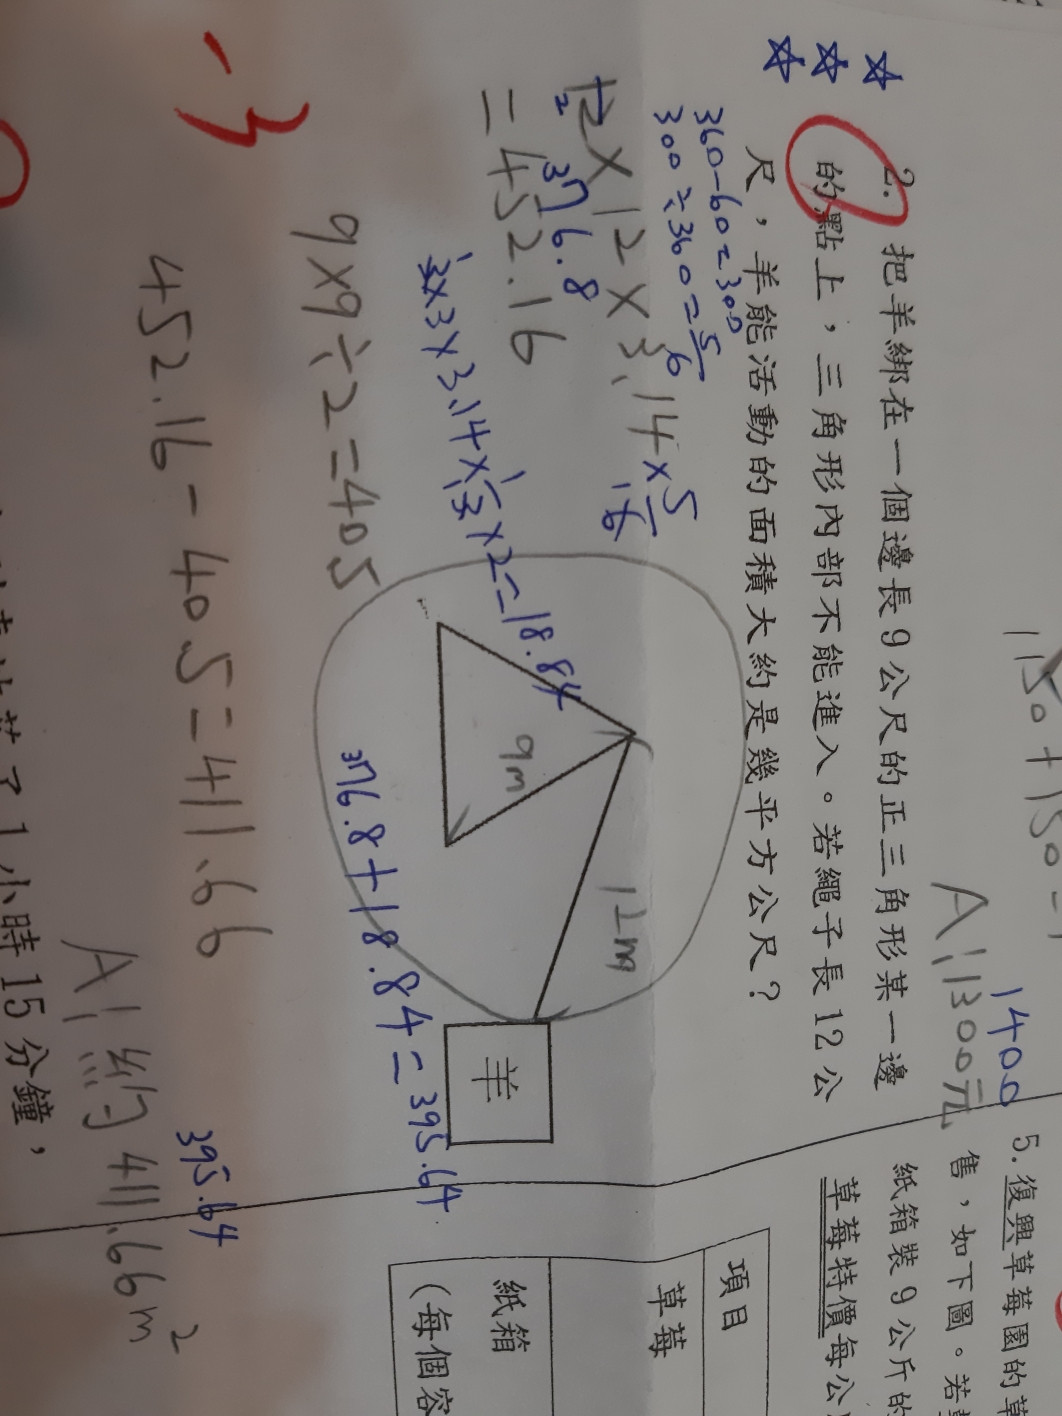 2. 把羊綁在一個邊長9公尺的正三角形某一邊
的點上，三角形內部不能進入。若繩子長12公
尺，羊能活動的面積大約是幾平方公尺？
360-60=300
300÷360=5/6
12×12×3.14×5/6
2
376.8
=452.16
3×3×3.14×1/3×2=18.84
9×9÷2=40.5
376.8+18.84=395.64
452.16-40.5=411.66
A:約411.66m²
395.64
9m
12m
羊
-3
150+150=
1400
A:1300元
5. 復興草莓園的草
售，如下圖。若
紙箱裝9公斤的
草莓特價每公
項目
草莓
紙箱
(每個容
了1小時15分鐘，